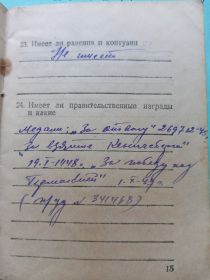 23. Имеет ли ранения и контузии
Не имеет
24. Имеет ли правительственные награды
и какие
Медали: „За отвагу"
За взятие Кенигсберга"
19.I-1948. „За победу над
Германией"
(труд № 341468)
15